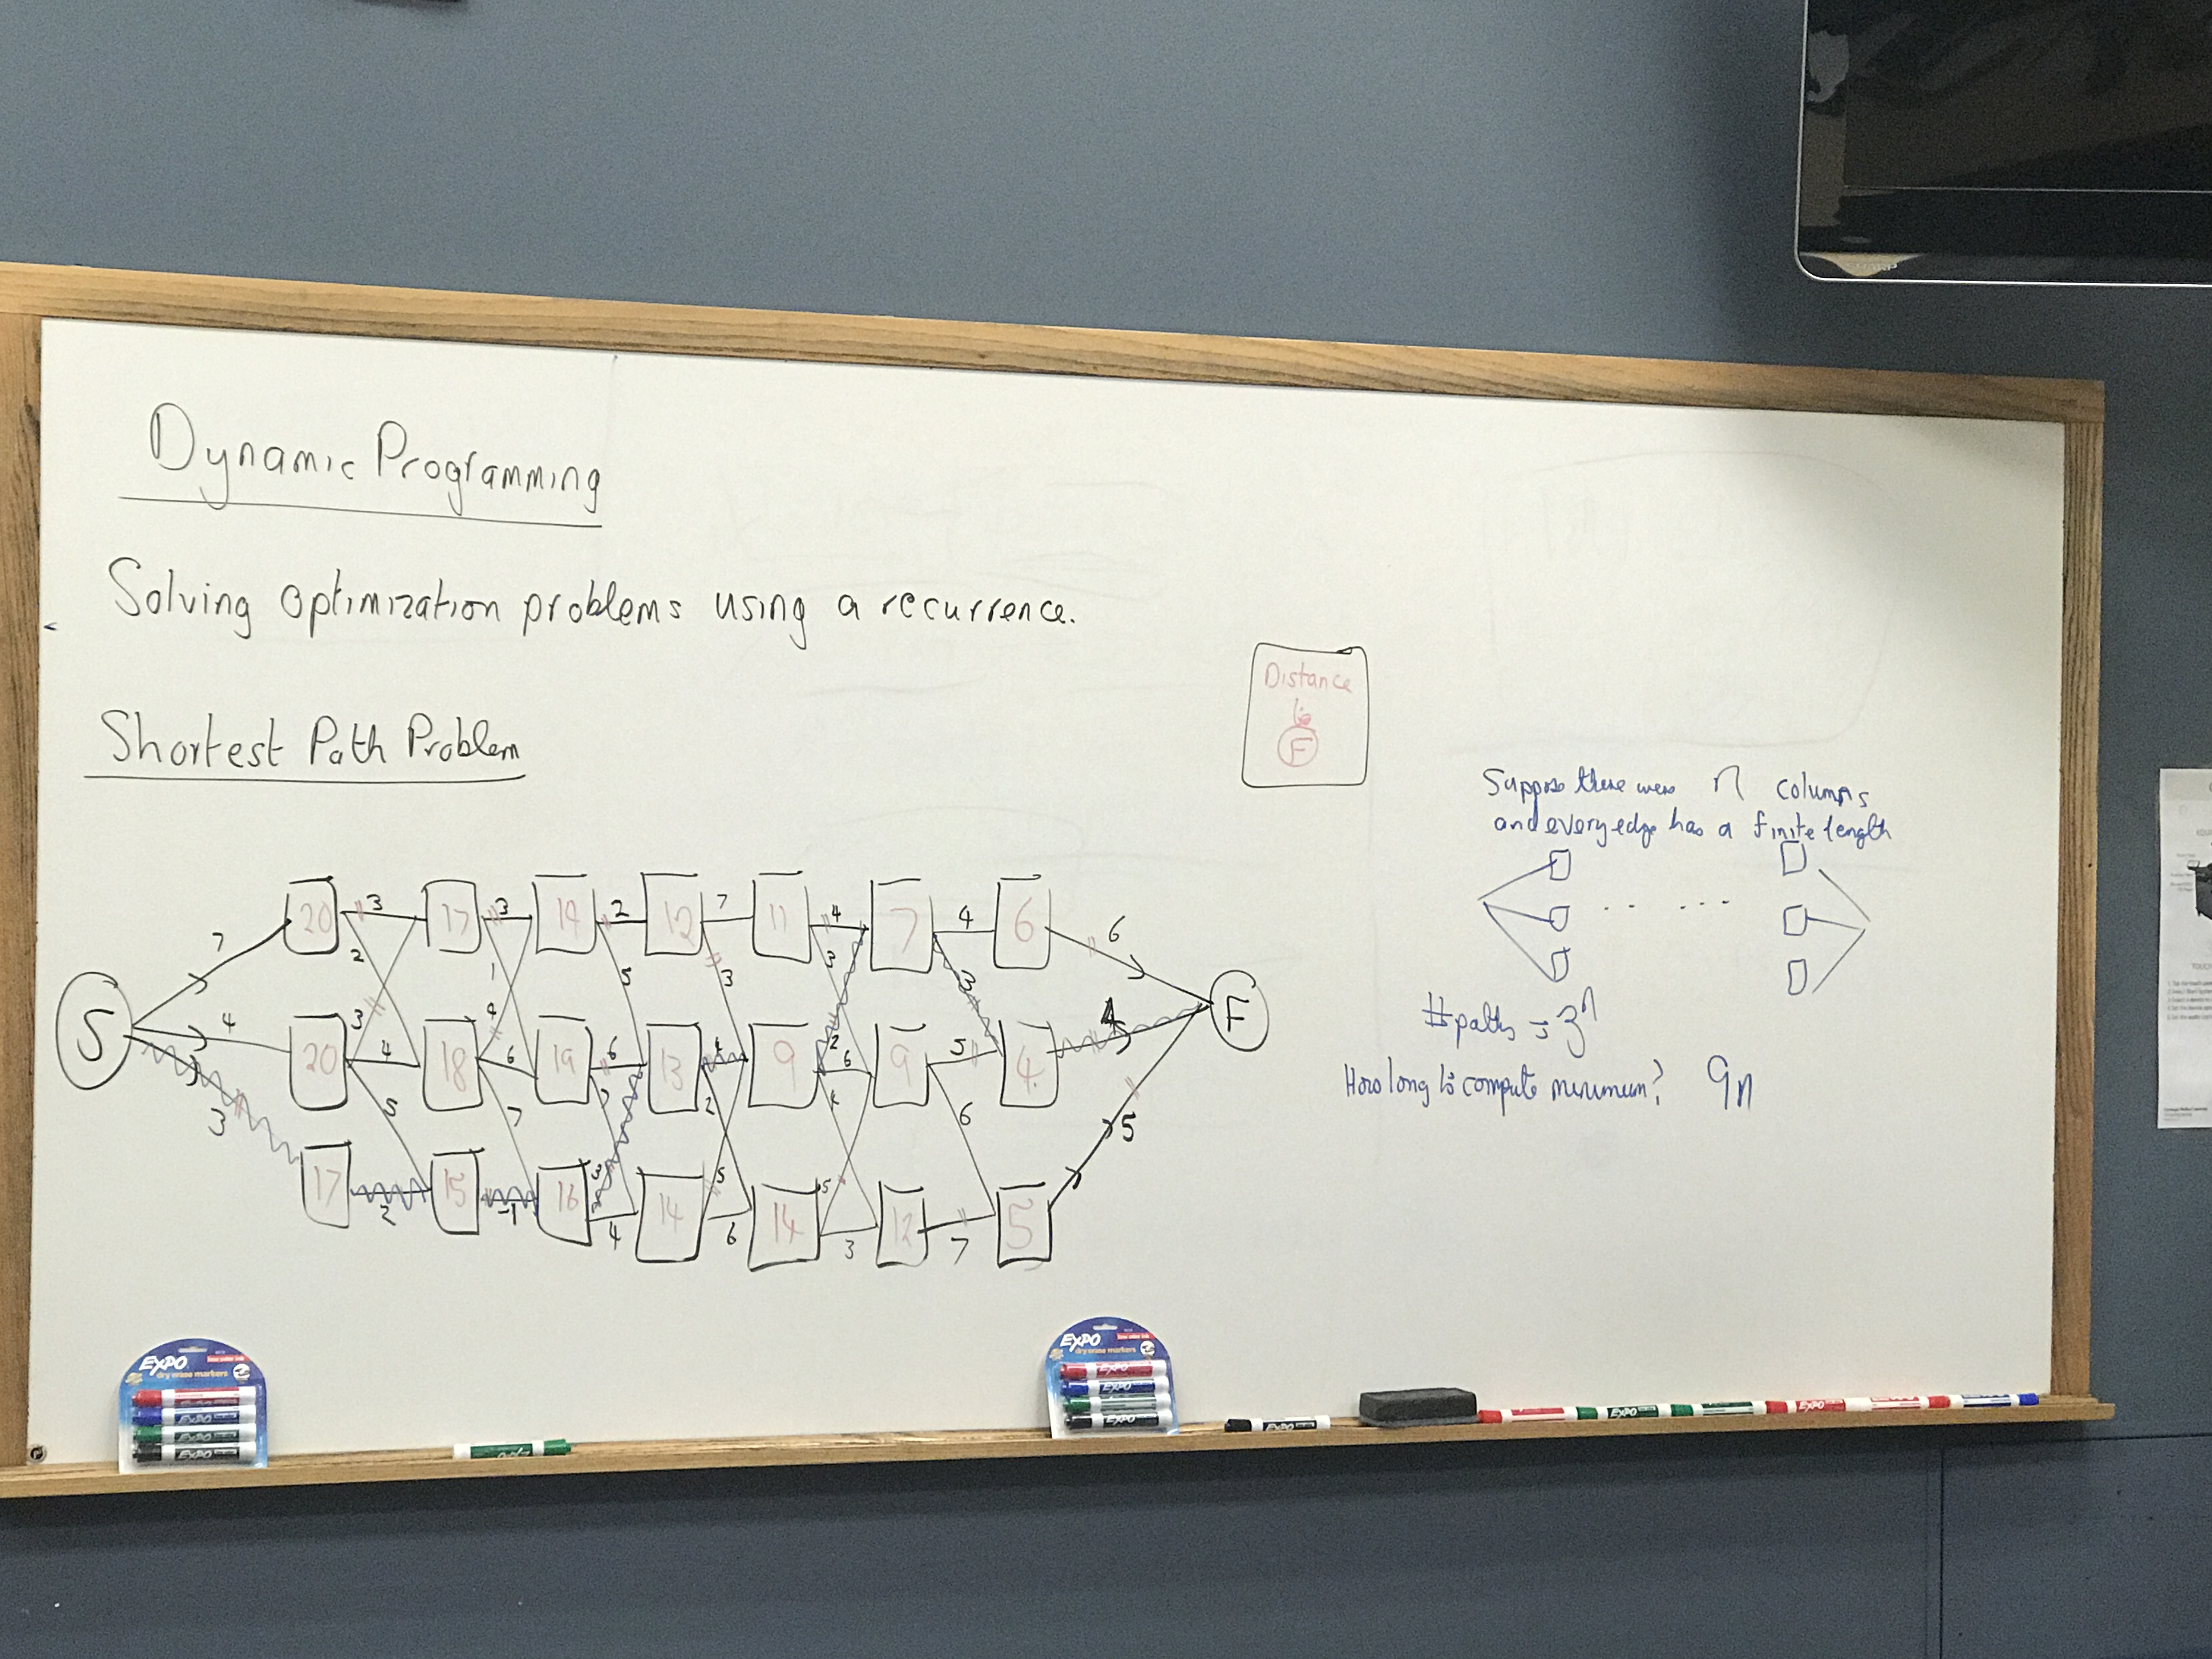 Dynamic Programming
Solving optimization problems using a recurrence.
Shortest Path Problem
Distance
to
F
Suppose there were n columns
and every edge has a finite length
# paths = 3^n
How long to compute minimum? 9n
S
7
4
3
20 3 17 3 14 2 12 7 11 4 7 4 6 6
2 1 5 3 3 3
3 4
20 4 18 6 19 6 13 1 9 6 9 5 4 4
5 7 2 2 6
3 5 5
17 2 15 -1 16 4 14 6 14 3 12 7 5 5
F
EXPO
dry erase markers
EXPO
dry erase markers
EXPO
EXPO
EXPO